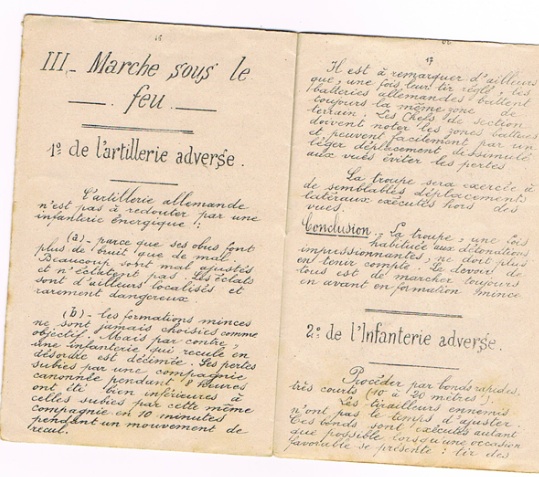 III_ Marche sous le
feu
1º de l'artillerie adverse.
L'artillerie allemande
n'est pas à redouter par une
infanterie énergique :
(a) - parce que ses obus font
plus de bruit que de mal.
Beaucoup sont mal ajustés
et n'éclatent pas. Les éclats
sont d'ailleurs localisés et
rarement dangereux
(b) - les formations minces
ne sont jamais choisies comme
objectif. Mais par contre,
une infanterie qui recule en
désordre est décimée. Les pertes
subies par une compagnie
canonnée pendant 8 heures
ont été bien inférieures à
celles subies par cette même
compagnie en 10 minutes
pendant un mouvement de
recul.
17
Il est à remarquer d'ailleurs
que, une fois leur tir réglé, les
batteries allemandes battent
toujours la même zone de
terrain. Les Chefs de section
doivent noter les zones battues
et peuvent facilement par un
léger déplacement dissimulé
aux vues éviter les pertes
La troupe sera exercée à
de semblables déplacements
latéraux exécutés hors des
vues.
Conclusion. La troupe, une fois
habituée aux détonations
impressionnantes, ne doit plus
en tenir compte. Le devoir de
tous est de marcher toujours
en avant en formation mince
2º de l'Infanterie adverse.
Procéder par bonds rapides,
très courts (10 à 20 mètres).
Les tirailleurs ennemis
n'ont pas le temps d'ajuster.
Ces bonds sont exécutés autant
que possible lorsqu'une occasion
favorable se présente : tir des